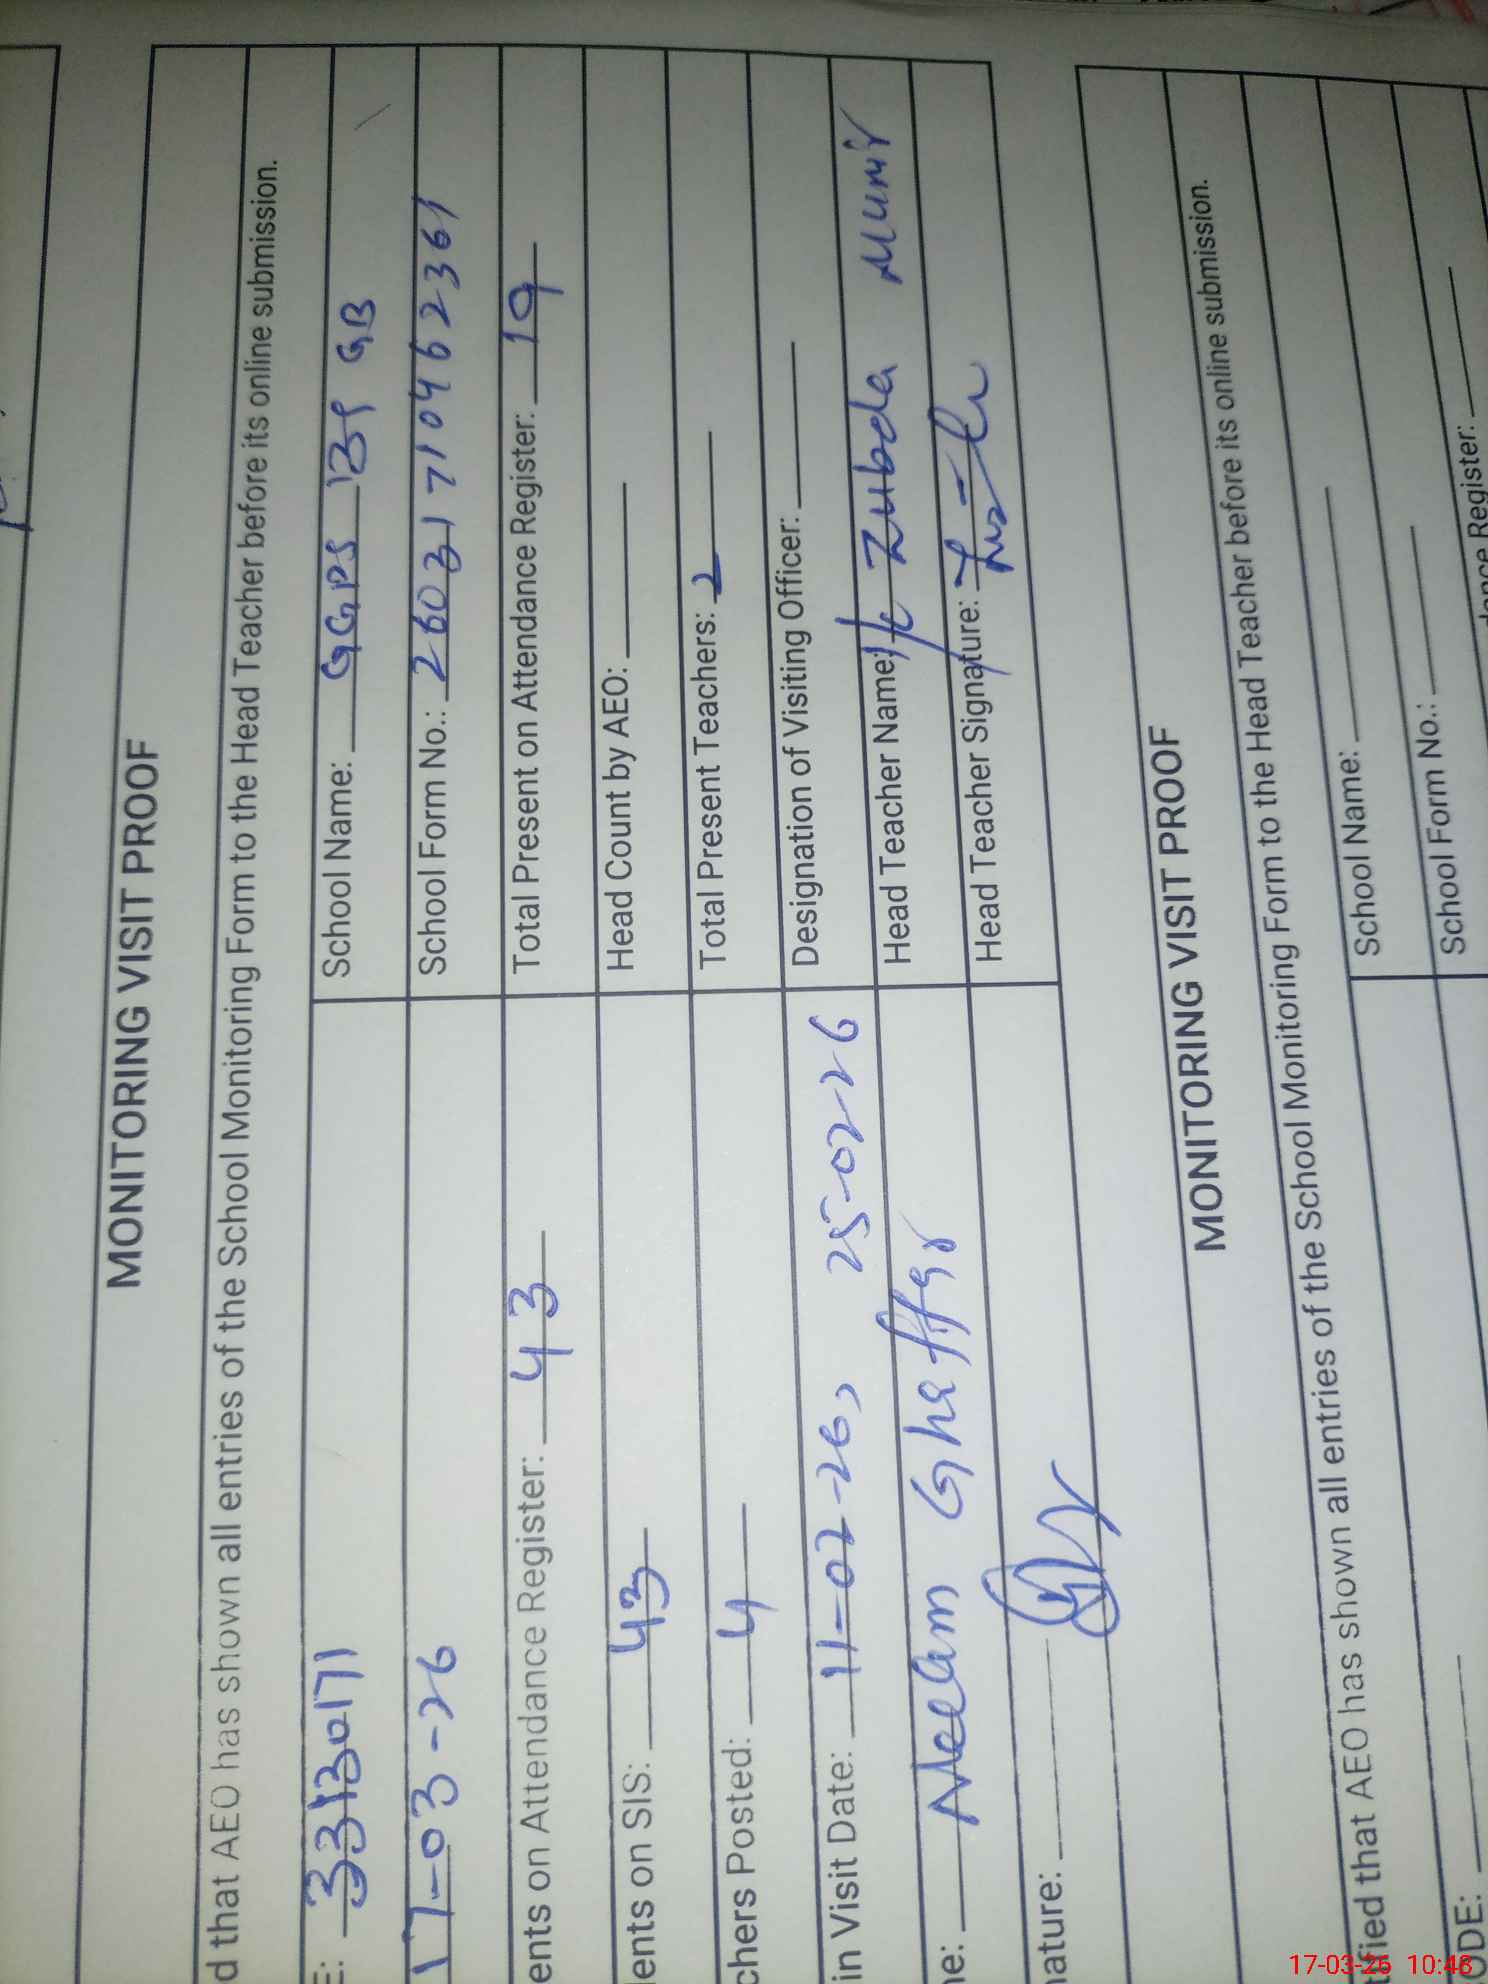 MONITORING VISIT PROOF
d that AEO has shown all entries of the School Monitoring Form to the Head Teacher before its online submission.
E: 33130171 School Name: GGPS 139 GB
17-03-26 School Form No.: 26031710462361
ents on Attendance Register: 43 Total Present on Attendance Register: 19
ents on SIS: 43 Head Count by AEO:
chers Posted: 4 Total Present Teachers: 2
in Visit Date: 11-02-26, 25-02-26 Designation of Visiting Officer:
ne: Neelam Ghaffar Head Teacher Name: I/c Zubda Munir
nature: Head Teacher Signature:
MONITORING VISIT PROOF
fied that AEO has shown all entries of the School Monitoring Form to the Head Teacher before its online submission.
ODE: School Name:
School Form No.:
dance Register:
17-03-26 10:48